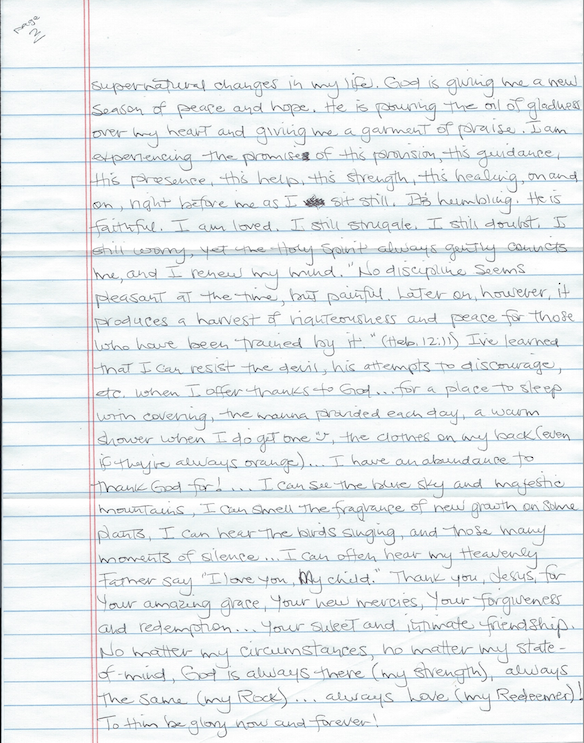 page
2
supernatural changes in my life. God is giving me a new
season of peace and hope. He is pouring the oil of gladness
over my heart and giving me a garment of praise. I am
experiencing the promises of His provision, His guidance,
His presence, His help, His strength, His healing, on and
on, right before me as I sit still. It's humbling. He is
faithful. I am loved. I still struggle. I still doubt. I
still worry, yet the Holy Spirit always gently convicts
me, and I renew my mind. "No discipline seems
pleasant at the time, but painful. Later on, however, it
produces a harvest of righteousness and peace for those
who have been trained by it." (Heb. 12:11) I've learned
that I can resist the devil, his attempts to discourage,
etc. when I offer thanks to God... for a place to sleep
with covering, the manna provided each day, a warm
shower when I do get one, the clothes on my back (even
if they're always orange)... I have an abundance to
thank God for! ... I can see the blue sky and majestic
mountains, I can smell the fragrance of new growth on some
plants, I can hear the birds singing, and those many
moments of silence... I can often hear my Heavenly
Father say "I love you, My child." Thank you, Jesus, for
Your amazing grace, Your new mercies, Your forgiveness
and redemption... Your sweet and intimate friendship.
No matter my circumstances, no matter my state-
of-mind, God is always there (my strength), always
the same (my Rock)... always Love (my Redeemer)!
To Him be glory now and forever!